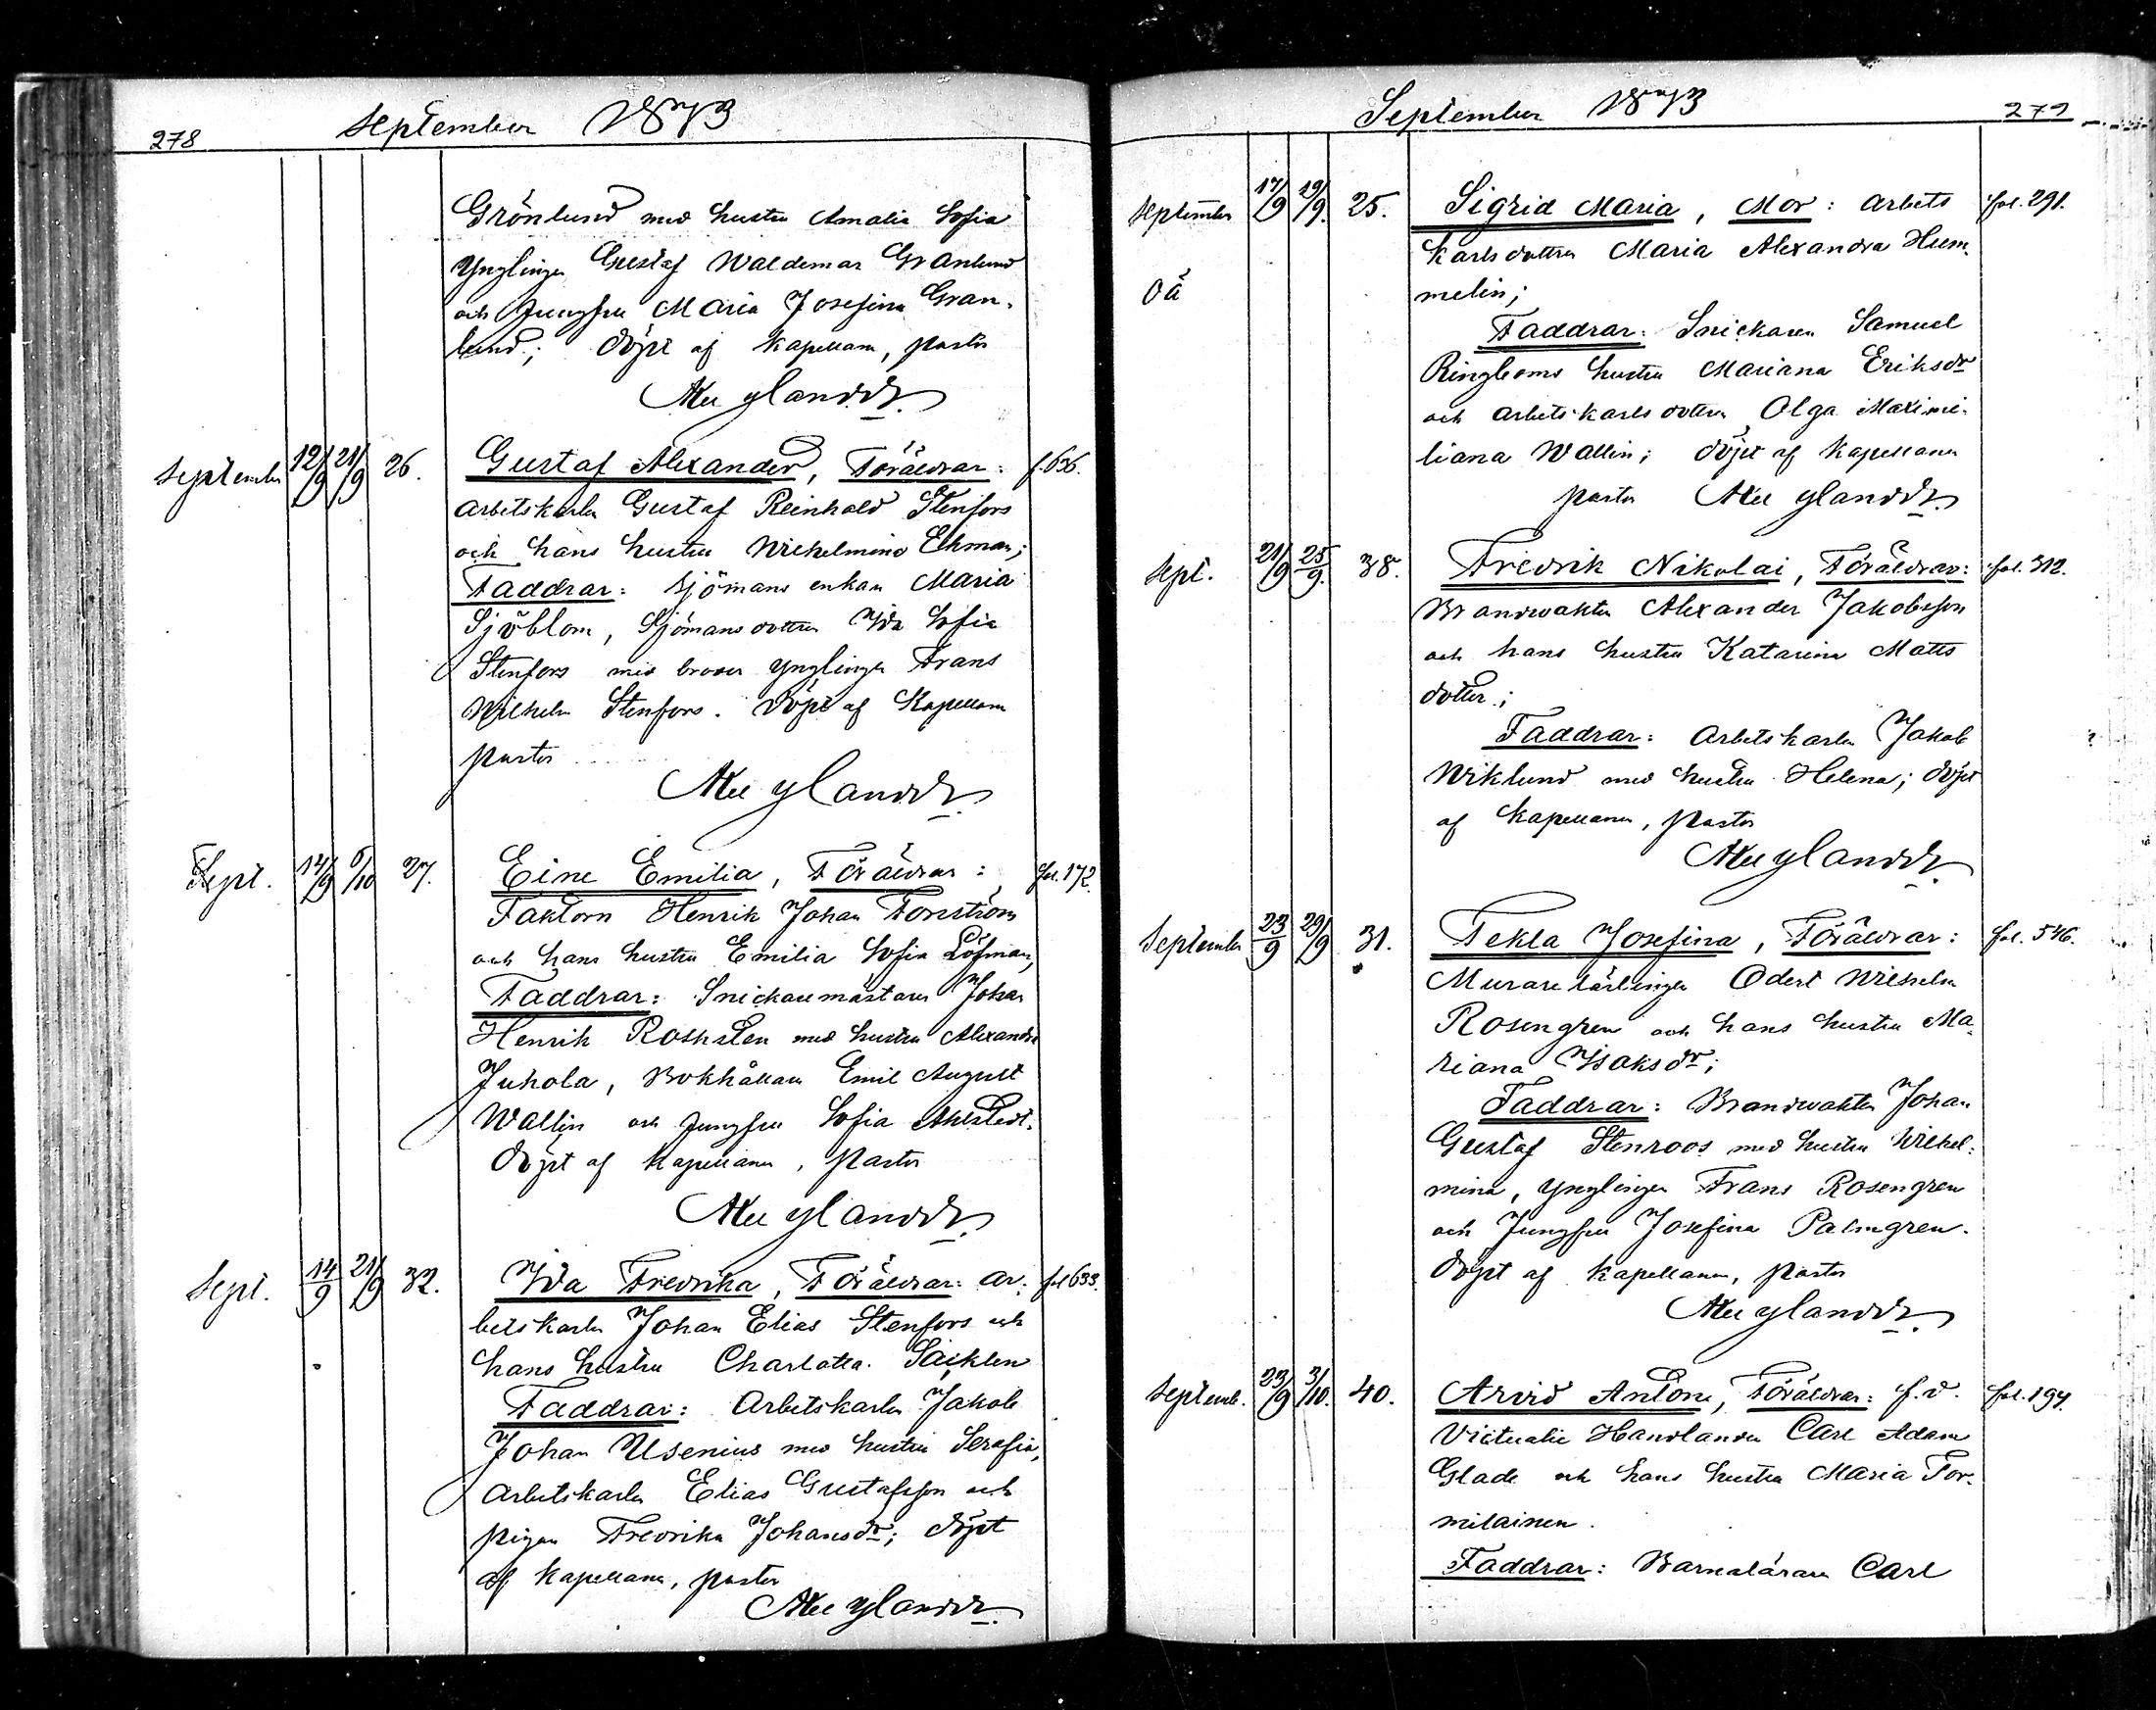 278 September 1873
Grönlund med hustru Amalia Sofia
Ynglingen Gustaf Waldemar Granlund
och Jungfru Maria Josefina Gran-
lund; döpt af Kapellan, pastor
Mu ylander.
September 12/9 21/9 26. Gustaf Alexander, Föräldrar: f. 636.
arbetskarlen Gustaf Reinhold Stenfors
och hans hustru Wilhelmina Ekman;
Faddrar: Sjömans enkan Maria
Sjöblom, Sjömansdottren Ida Sofia
Stenfors med broder ynglingen Frans
Wilhelm Stenfors. Döpt af Kapellan
pastor
Mu ylander.
Sept. 14/9 5/10 27. Eine Emilia, Föräldrar: fol. 172.
Faktorn Henrik Johan Forsström
och hans hustru Emilia Sofia Löfman,
Faddrar: Snickaremästaren Johan
Henrik Roshsten med hustru Alexandra
Juhola, Bokhållaren Emil August
Wallin och Jungfru Sofia Ahlstedt.
Döpt af Kapellanen, Pastor
Mu ylander.
Sept. 14/9 21/9 32. Ida Fredrika, Föräldrar: ar- fol 633.
betskarlen Johan Elias Stenfors och
hans hustru Charlotta Säiklen
Faddrar: Arbetskarlen Jakob
Johan Usenius med hustru Serafia,
arbetskarlen Elias Gustafsson och
pigan Fredrika Johansdr; döpt
af Kapellanen, pastor
Mu ylander.
September 1873 279
September 17/9 19/9. 25. Sigrid Maria, Mor: arbets fol. 291.
karlsdottren Maria Alexandra Hum-
Oä melin;
Faddrar: Snickaren Samuel
Ringboms hustru Mariana Eriksdr
och arbetskarlsdottren Olga Maximi-
liana Wallin; döpt af Kapellanen
pastor Mu ylander.
Sept. 21/9 25/9. 38. Fredrik Nikolai, Föräldrar: fol. 312.
Brandvakten Alexander Jakobsson
och hans hustru Katarina Matts
dotter;
Faddrar: Arbetskarlen Jakob
Wiklund med hustru Helena; döpt
af Kapellanen, Pastor
Mu ylander.
September 23/9 29/9 31. Tekla Josefina, Föräldrar: fol. 546.
Murarelärlingen Odert Wilhelm
Rosengren och hans hustru Ma-
riana Isaksdr;
Faddrar: Brandvakten Johan
Gustaf Stenroos med hustru Wilhel-
mina, ynglingen Frans Rosengren
och Jungfru Josefina Palmgren.
Döpt af Kapellanen, Pastor
Mu ylander.
Septemb. 23/9 3/10. 40. Arvid Antone, Föräldrar: f. d. fol. 194.
Victualie Handlanden Carl Adam
Glade och hans hustru Maria Tor-
milainen.
Faddrar: Barnaläraren Carl